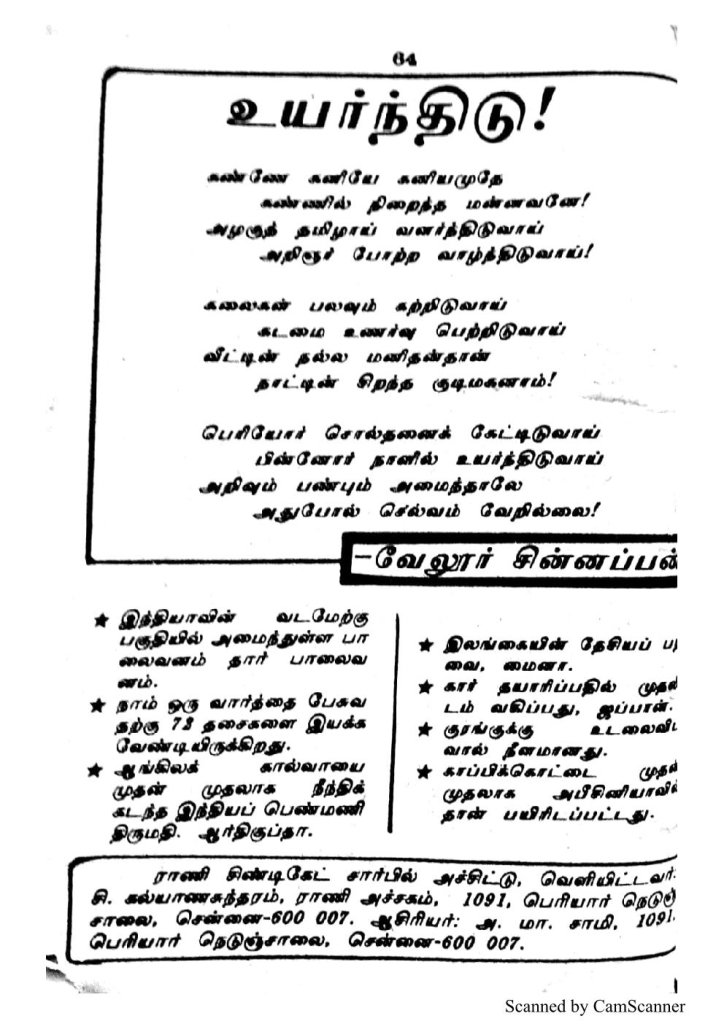 64
உயர்ந்திடு!
கண்ணே கனியே கனியமுதே
கண்ணில் நிறைந்த மன்னவனே!
அழகுத் தமிழாய் வளர்ந்திடுவாய்
அறிஞர் போற்ற வாழ்ந்திடுவாய்!
கலைகள் பலவும் கற்றிடுவாய்
கடமை உணர்வு பெற்றிடுவாய்
வீட்டின் நல்ல மனிதன்தான்
நாட்டின் சிறந்த குடிமகனாம்!
பெரியோர் சொல்தனைக் கேட்டிடுவாய்
பின்னோர் நாளில் உயர்ந்திடுவாய்
அறிவும் பண்பும் அமைந்தாலே
அதுபோல் செல்வம் வேறில்லை!
–வேலூர் சின்னப்பன்
★ இந்தியாவின் வடமேற்கு
பகுதியில் அமைந்துள்ள பா
லைவனம் தார் பாலைவ
னம்.
★ நாம் ஒரு வார்த்தை பேசுவ
தற்கு 72 தசைகளை இயக்க
வேண்டியிருக்கிறது.
★ ஆங்கிலக் கால்வாயை
முதன் முதலாக நீந்திக்
கடந்த இந்தியப் பெண்மணி
திருமதி. ஆர்திகுப்தா.
★ இலங்கையின் தேசியப் ப
வை, மைனா.
★ கார் தயாரிப்பதில் முதலி
டம் வகிப்பது, ஜப்பான்.
★ குரங்குக்கு உடலைவிட
வால் நீளமானது.
★ காப்பிக்கொட்டை முதன்
முதலாக அபிசினியாவில்
தான் பயிரிடப்பட்டது.
ராணி சிண்டிகேட் சார்பில் அச்சிட்டு, வெளியிட்டவர்:
சி. கல்யாணசுந்தரம், ராணி அச்சகம், 1091, பெரியார் நெடுஞ்
சாலை, சென்னை-600 007. ஆசிரியர்: அ. மா. சாமி, 1091,
பெரியார் நெடுஞ்சாலை, சென்னை-600 007.
Scanned by CamScanner